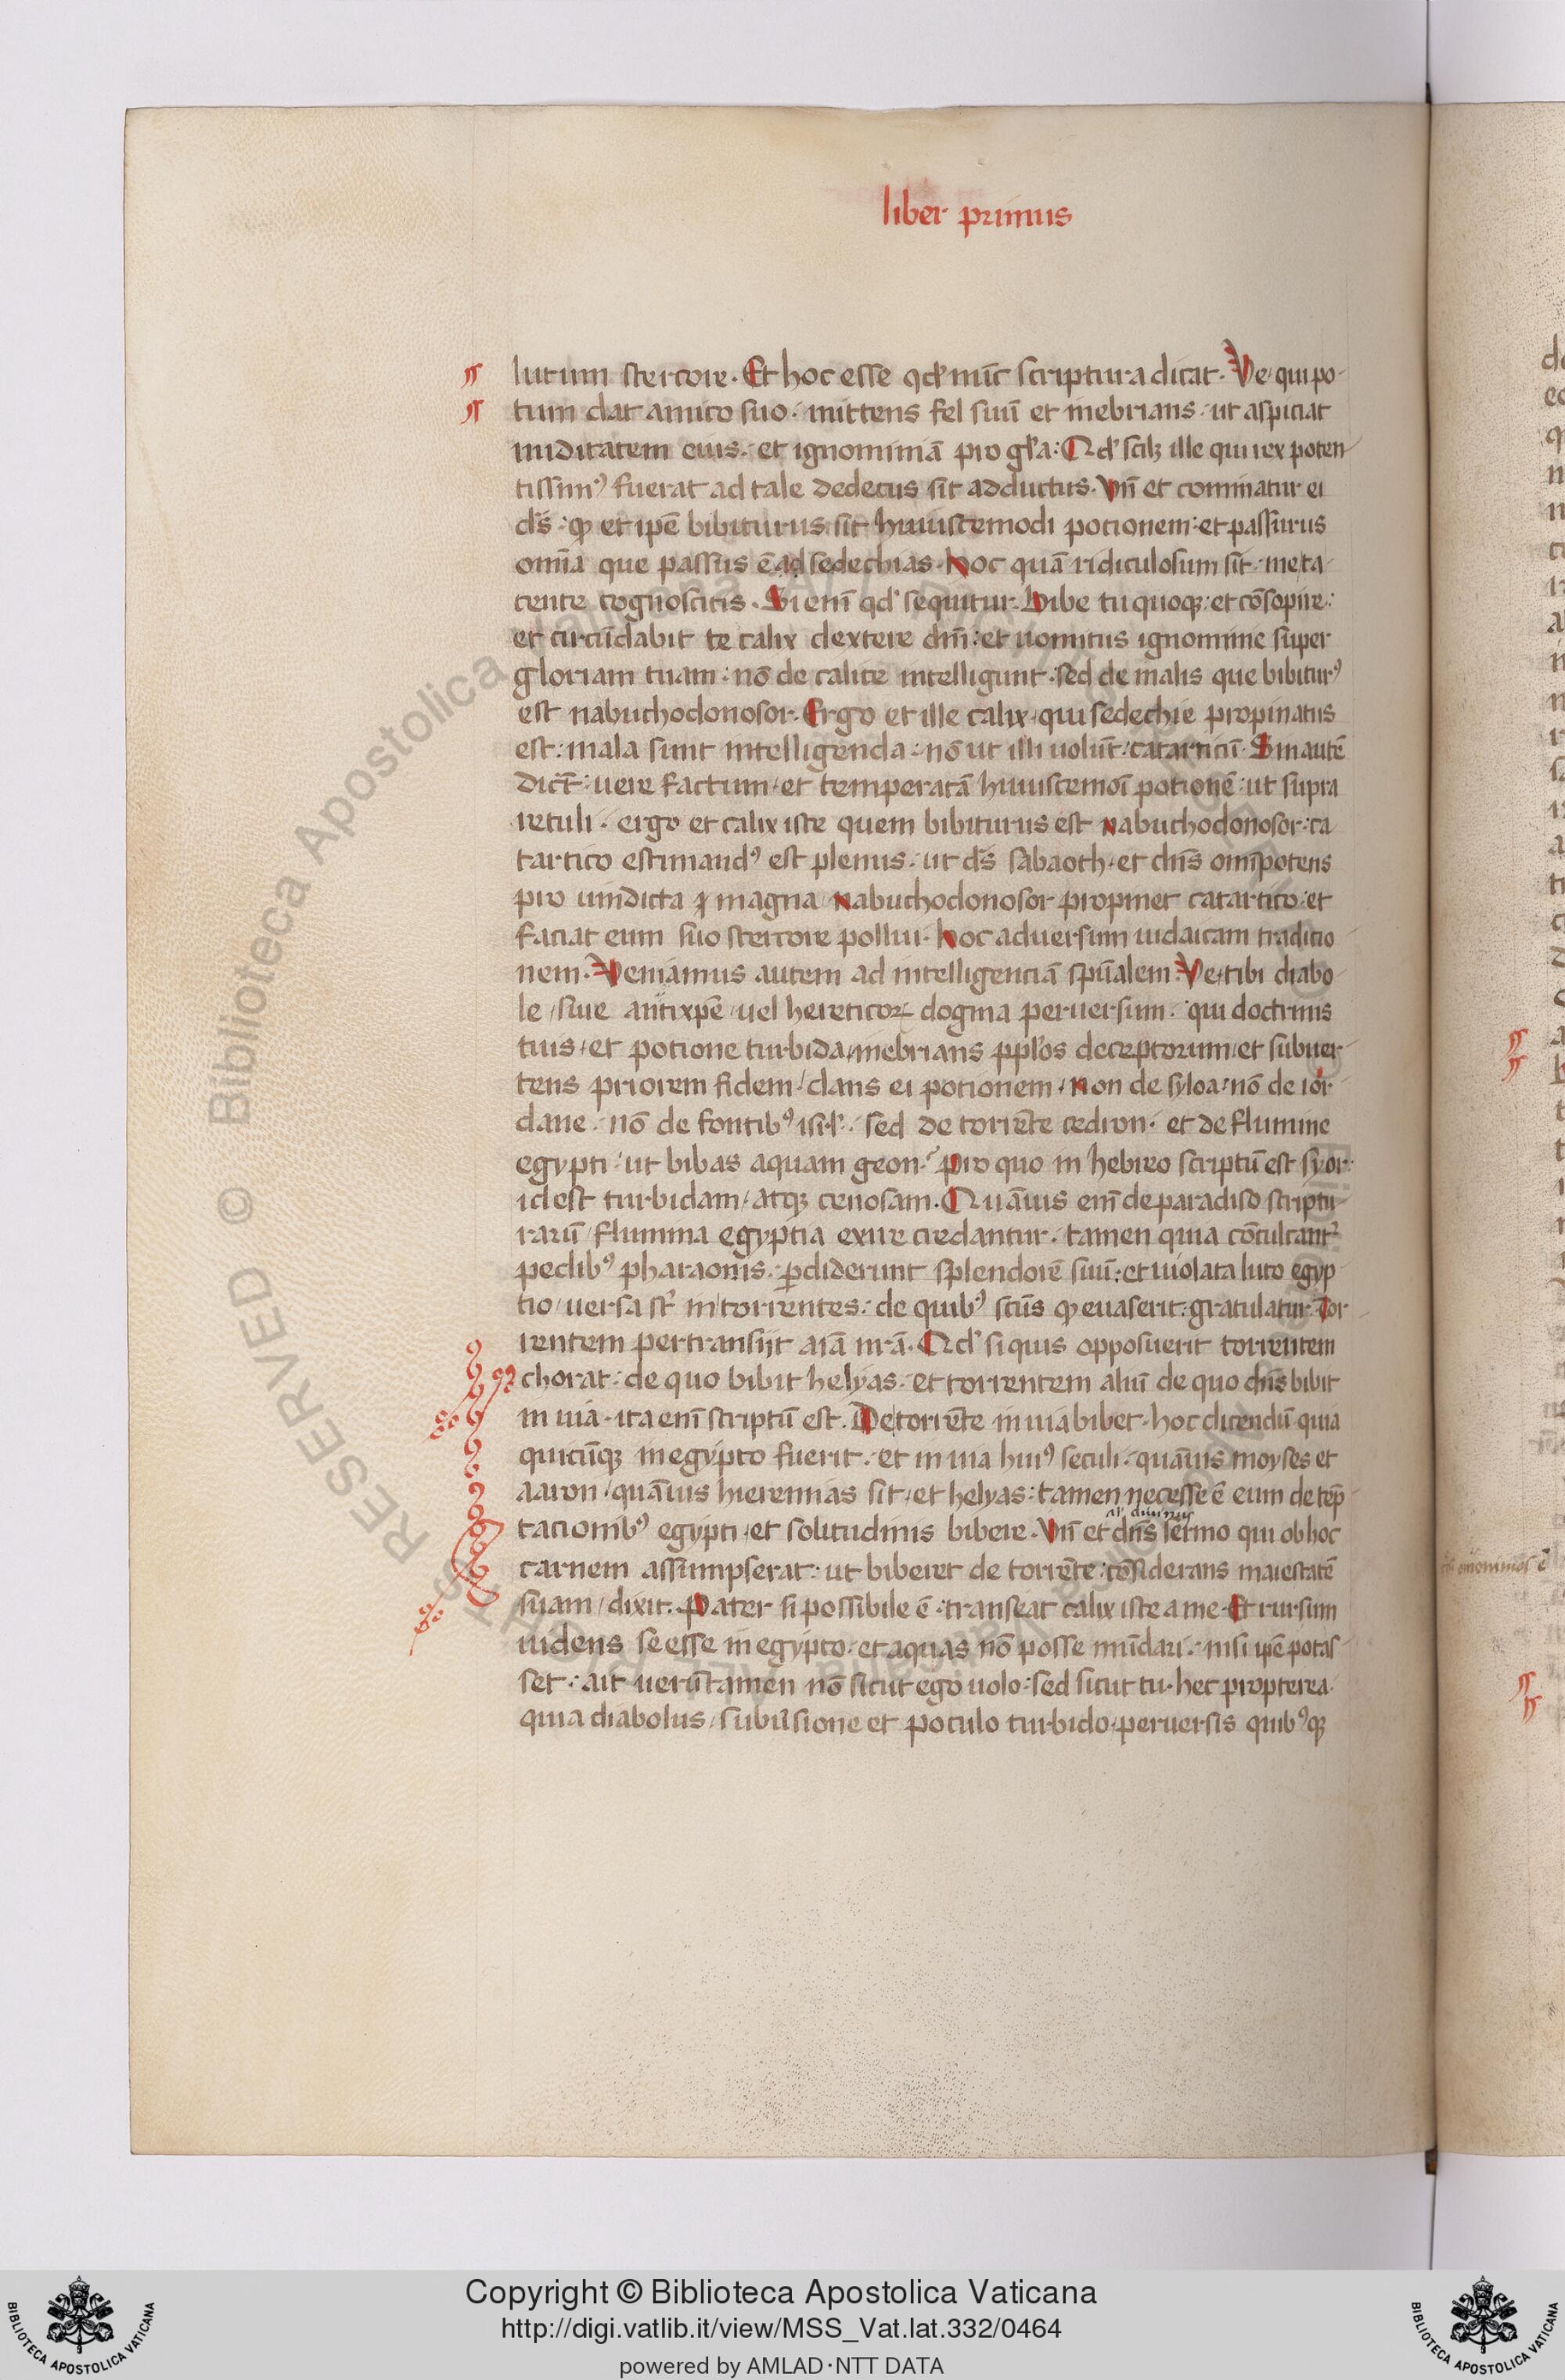 liber primus
lutum stercore. Et hoc esse qd' nūc scriptura dicat. Ve qui po-
tum dat amico suo. mittens fel suū et inebrians. ut aspiciat
nuditatem eius. et ignominiā pro gl'a: Qd' scilꝫ ille qui rex poten-
tissimꝰ fuerat ad tale dedecus sit adductus. Vn̄ et cominatur ei
d's: ꝙ et ip̄e bibiturus sit huiuscemodi potionem: et passurus
om̄ia que passus ē ad sedechias. Hoc quā ridiculosum sit. me ta-
cente cognoscitis. Si enī qd' sequitur. Bibe tu quoqꝫ: et cōsopire:
et circūdabit te calix dextere dn̄i: et uomitus ignominie super
gloriam tuam: nō de calice intelligunt. sed de malis que bibiturꝰ
est nabuchodonosor. Ergo et ille calix. qui sedechie propinatus
est: mala sunt intelligenda: nō ut illi uolūt: catarticū. Sin autē
dict̄: uere factum. et temperatā huiuscemōi potionē: ut supra
retuli. ergo et calix iste quem bibiturus est nabuchodonosor: ca
tartico estimandꝰ est plenus. ut d's sabaoth. et dn̄s om̄ipotens
pro uindicta magna nabuchodonosor propinet catartico: et
faciat eum suo stercore pollui. Hoc aduersum iudaicam traditio
nem. Veniamus autem ad intelligentiā spūalem. Ve tibi diabo-
le / siue antixpē / uel hereticoꝝ dogma peruersum. qui doctrinis
tuis. et potione turbida inebrians ppl'os deceptorum et subuer-
tens priorem fidem / dans ei potionem. non de syloa. nō de ior
dane. nō de fontibꝰ isr'l. sed de torrēte cedron. et de flumine
egypti / ut bibas aquam geon. pro quo in hebreo scriptū est syor.
id est turbidam / atqꝫ cenosam. Quāuis em̄ de paradiso scriptu-
rarū / flumina egyptia exire credantur. tamen quia cōculcant᷑
pedibꝰ pharaonis. ꝑdiderunt splendorē suū: et uiolata luto egyp
tio / uersa st᷑ in torrentes: de quibꝰ scūs ꝙ euaserit: gratulatur. Tor
rentem pertransijt aīa nr̄a. Qd' si quis opposuerit torrentem
chorat: de quo bibit helyas. et torrentem aliū de quo dn̄s bibit
in uia. ita enī scriptū est. De torrēte in uia bibet. hoc dicendū quia
quicūqꝫ in egypto fuerit. et in uia huiꝰ seculi. quāuis moyses et
aaron / quāuis hieremias sit / et helyas: tamen necesse ē eum de tēp
al' diuinus
tacionibꝰ egypti. et solitudinis bibere. Vn̄ et dn̄s sermo qui ob hoc
carnem assumpserat: ut biberet de torrēte: cōsiderans maiestatē
suam / dixit. Pater si possibile ē. transeat calix iste a me. Et rursum
uidens se esse in egypto. et aquas nō posse mūdari. nisi ip̄e potas-
set: ait uerūtamen nō sicut ego uolo: sed sicut tu. hec propterea.
quia diabolus / subu'sione et poculo turbido. peruersis quibꝰqꝫ
Copyright © Biblioteca Apostolica Vaticana
http://digi.vatlib.it/view/MSS_Vat.lat.332/0464
powered by AMLAD·NTT DATA